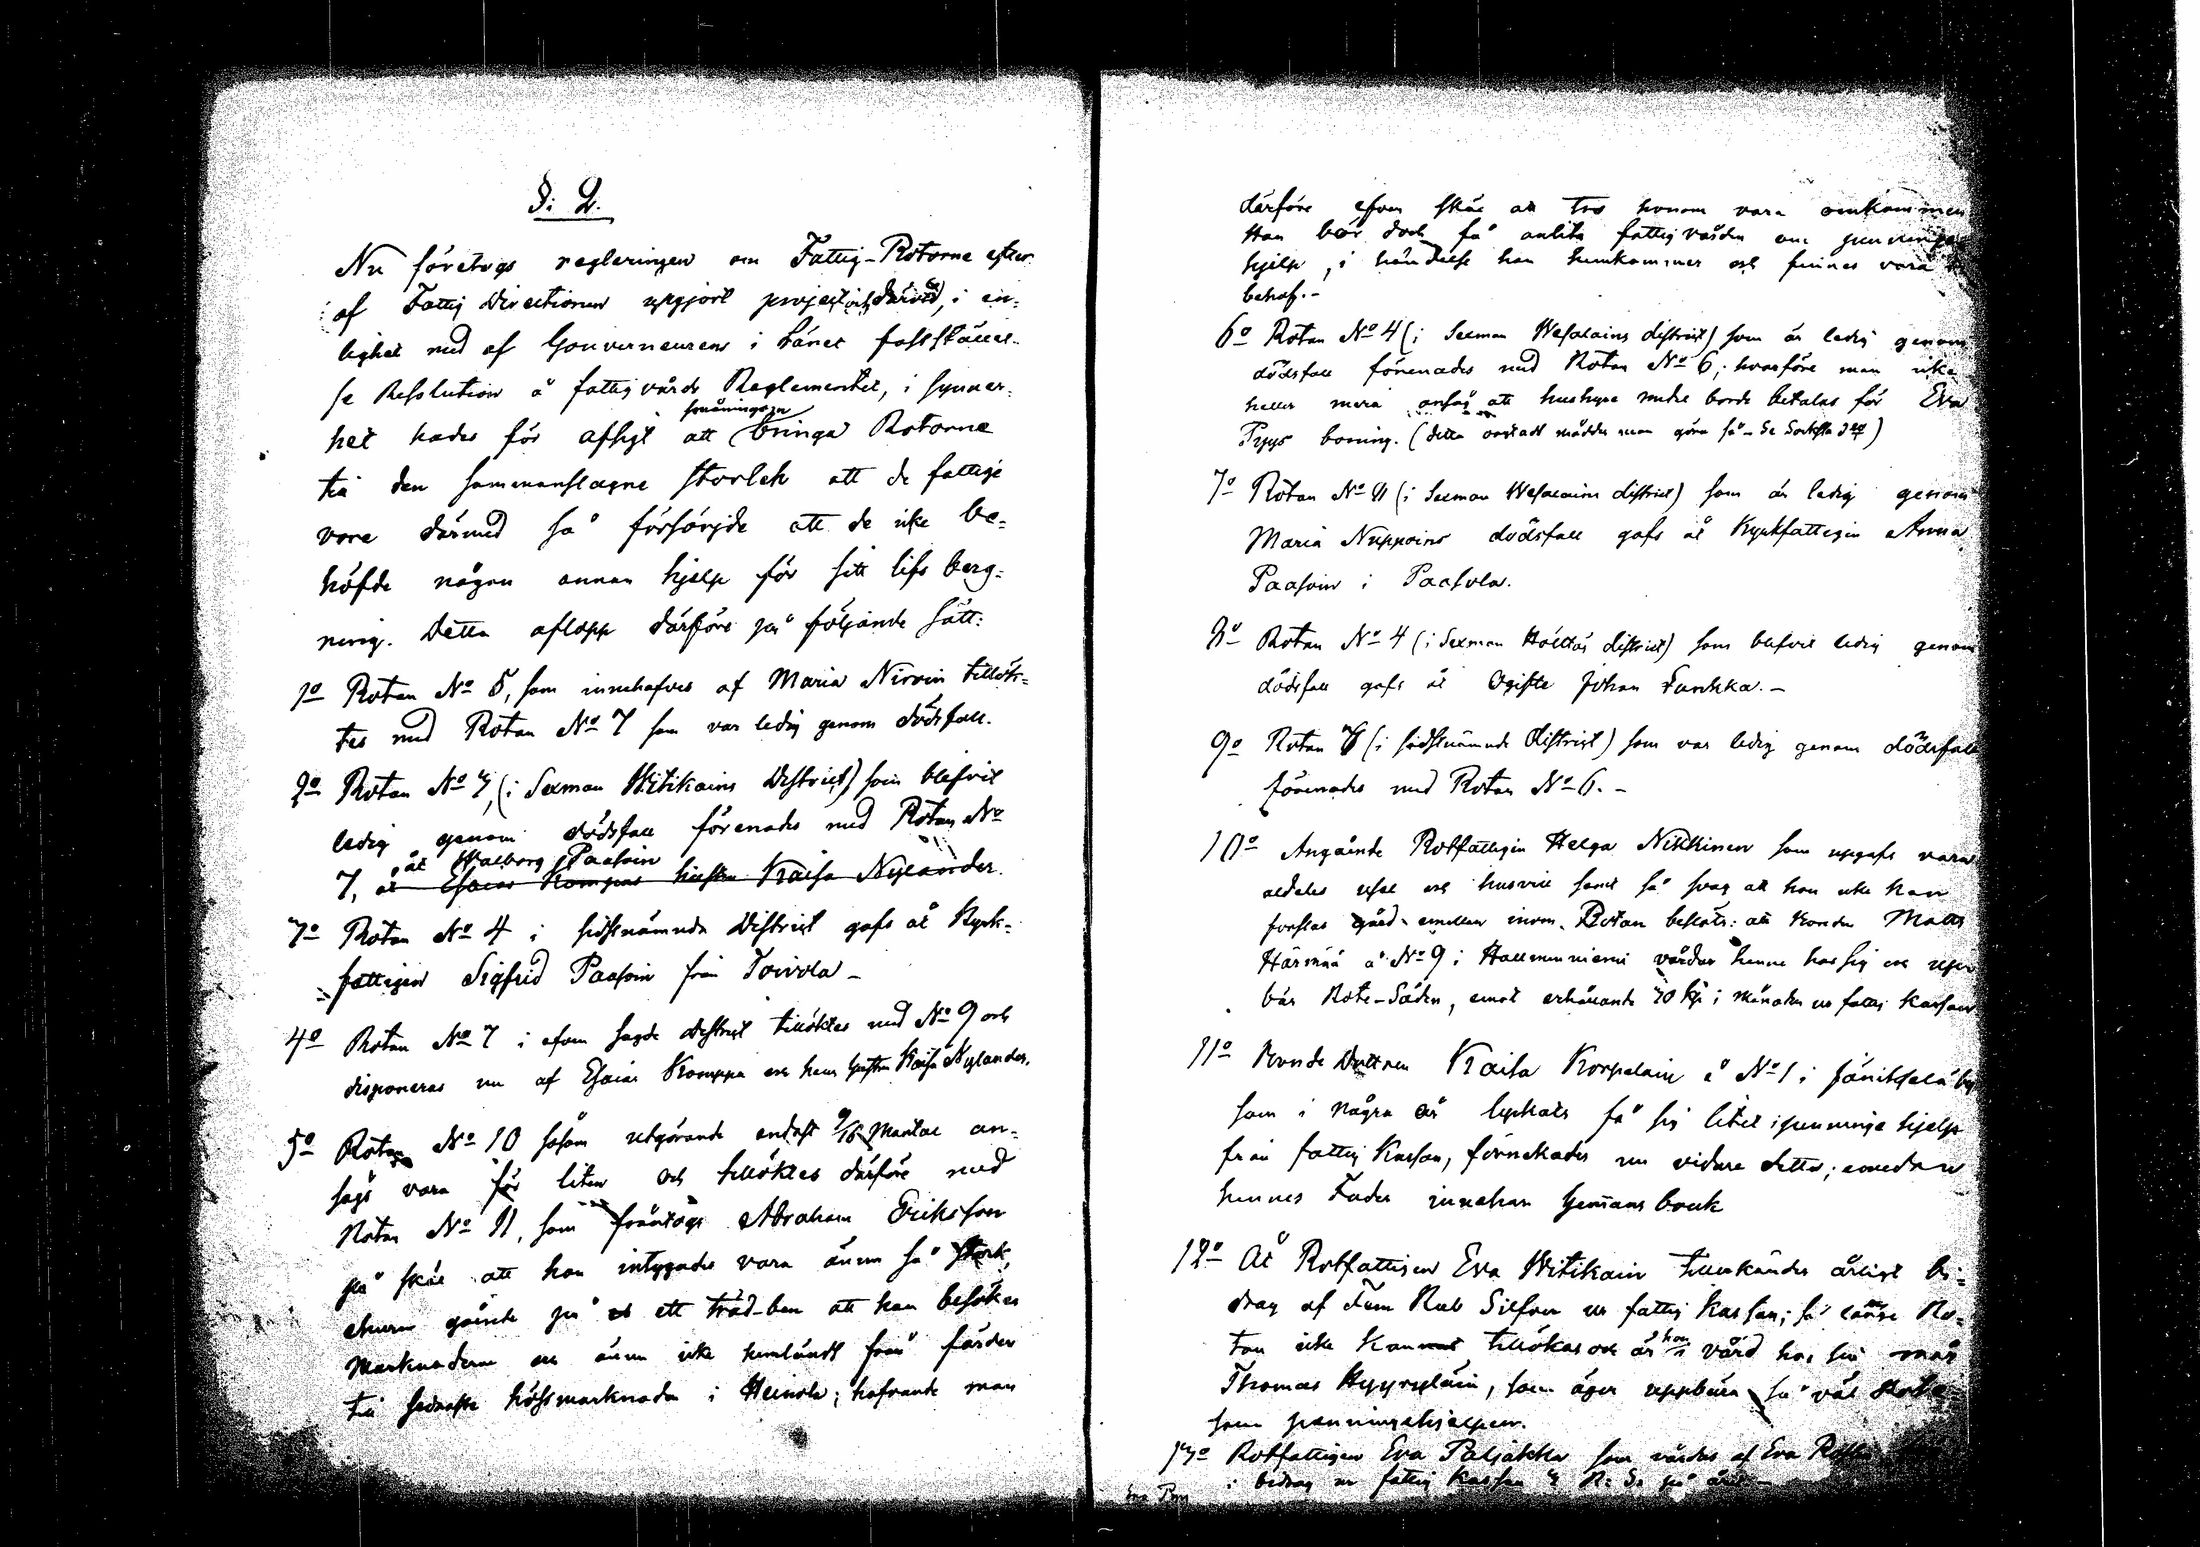 §: 2.
Nu företogs regleringen om Fattig-Rotorne efter
af Fattig Directionen upgjort project och därvid, i en-
lighet med af Gouverneurens i Länet fastställel-
se Resolution å fattigvårds Reglementet, i synner-
het hades för afsigt att småningom bringa Rotorne
til den sammanslagne storlek att de fattige
vore därmed så försörjde att de icke be-
höfde någon annan hjelp för sitt lifs berg-
ning. Detta aflopp därföre på följande sätt:
1o Rotan No 5, som innehafves af Maria Nirvin tillök-
tes med Rotan No 7 som var ledig genom dödsfall.
2o Rotan No 3, (i Sexman Witikains District) som blefvit
ledig genom dödsfall förenades med Rotan No
7, åt Walborg Paasoin
åt Esaias Komppas hustru Kaisa Nylander.
3o Rotan No 4 i sidstnämnda District gafs åt Kyrk-
fattigen Sigfrid Paasoin från Toivola -
4o Rotan No 7 i ofvan sagde District tillöktes med No 9 och
disponeras nu af Esaias Komppa och hans hustru Kaisa Nylander.
5o Rotan No 10 såsom utgörande endast 9/16 Mantal an-
sågs vara för liten och tillöktes därföre med
Rotan No 11, som fråntogs Abraham Eriksson
på skäl att han intygades vara ännu så stark,
ehuru gående på ett träd-ben att han besöker
Marknaderne och ännu icke hemländt från färden
til sednaste höstmarknaden i Heinola; hafvande man
därföre efven skäl att tro honom vara omkommen
Han bör dock få anlita fattigvården om penninge
hjelp, i händelse han hemkommer och finnes vara i
behof. -
6o Rotan No 4 (i Sexman Wesalains district) som är ledig genom
dödsfall förenades med Rotan No 6; hvarföre man icke
heller mera ansåg att hushyra mdre borde betalas för Eva
Pyys boning. (detta oaktadt måddte man göra så -
7o Rotan No 11 (i Sexman Wesalains district) som är ledig genom
Maria Nupposins dödsfall gafs åt Kyrkfattigen Anna
Paasoin i Paasola.
8o Rotan No 4 (i Sexman Hölttäs district) som blefvit ledig genom
dödsfall gafs åt Ogifte Johan Funkka. -
9o Rotan 8 (i sidstnämnde District) som var ledig genom dödsfall
förenades med Rotan No 6. -
10o Angående Rotfattigen Helga Nikkinen som upgafs vara
aldeles usel och husvill samt så svag att hon icke kan
forslas gård-emellan inom Rotan beslöts: att bonden Matts
Härmä å No 9 i Hallmenniemi vårdar henne hos sig och upp-
bär Rote-Säden, emot erhållande 30 Kp i månaden ur fattig Kassan
11o Bonde Dottren Kaisa Korpelain å No 1 i Jänitsala by
som i några år lyckats få sig litet i penninge hjelp
från fattig Kassan, förnekades nu vidare detta; emedan
hennes Fader innehar hemmans bruk
12o Åt Rotfattigen Eva Witikain tillerkändes årligt bi-
drag af Fem Rub Silfver ur fattig Kassan; så länge Ro-
tan icke kan tillökas och är hon i vård hos sin måg
Thomas Hyyryläin, som äger uppbära så väl Rote
som penningehjelpen.
13o Rotfattigen Eva Paljakka som vårdas af Eva
i bidrag ur fattig Kassan 3 R: S: på året -